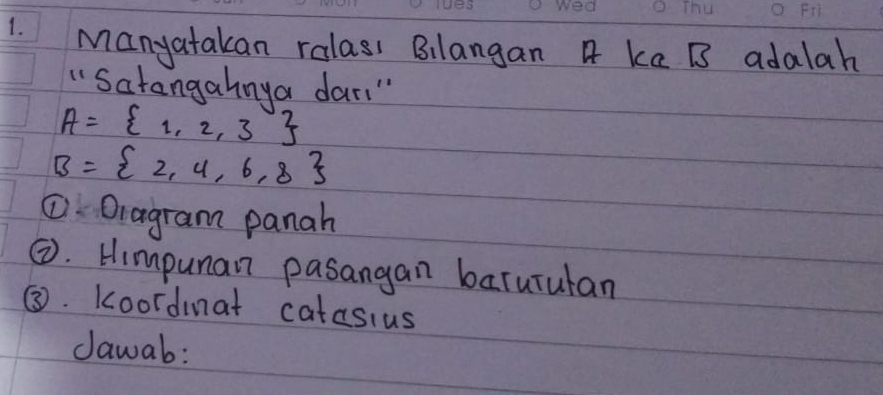 Tues Wed Thu Fri
1. Manyatakan ralasi Bilangan A ka B adalah
"Satangahnya dari"
A = { 1, 2, 3 }
B = { 2, 4, 6, 8 }
① Diagram panah
②. Himpunan pasangan barurutan
③. Koordinat catasius
Jawab: